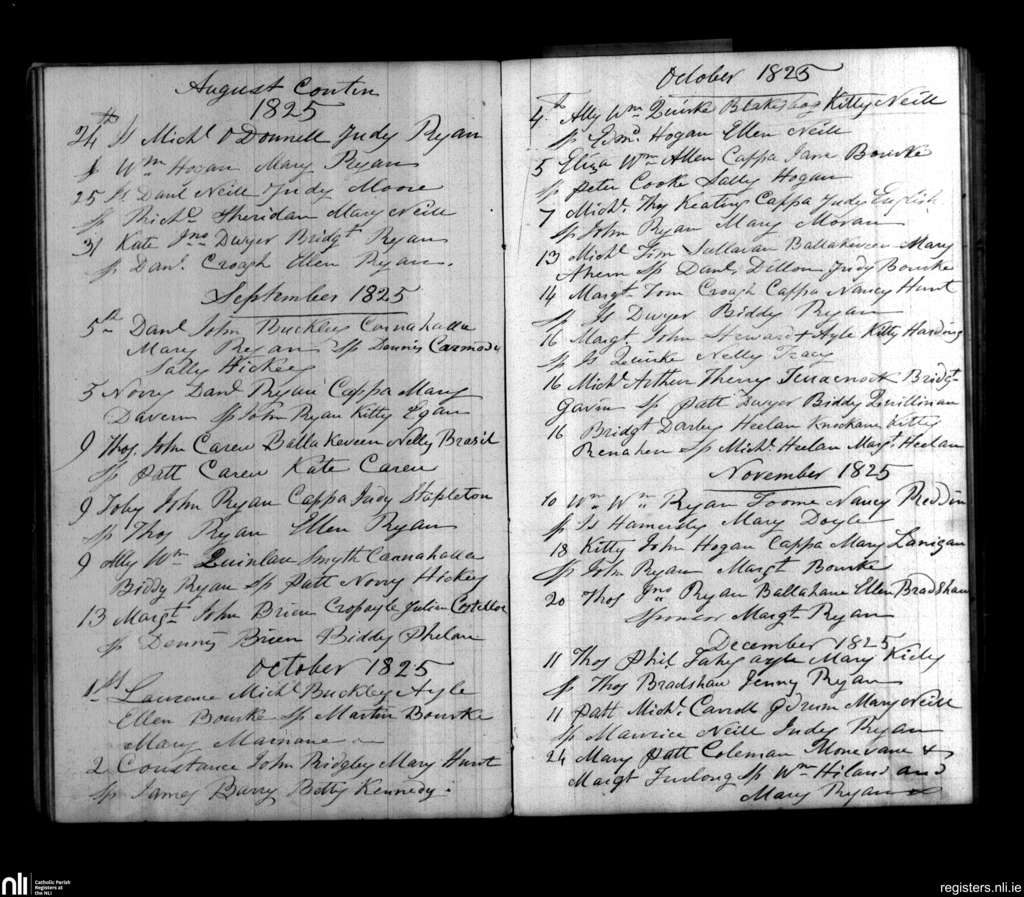 August Contin
1825
24th Js Michl O Donnell Judy Ryan
Sp Wm Hogan Mary Ryan
25 Js Danl Neill Judy Moore
Sp Richd Sheridan Mary Neill
31 Kate Jno Dwyer Bridgt Ryan
Sp Danl Croagh Ellen Ryan.
September 1825
5th Danl John Buckley Cannahalla
Mary Ryan Sp Dennis Carmody
Sally Hickey
5 Norry Danl Ryan Cappa Mary
Davern Sp John Ryan Kitty Egan
9 Thos. John Carew Ballakeveen Nelly Brasil
Sp Patt Carew Kate Carew
9 Toby John Ryan Cappa Judy Stapleton
Sp Thos Ryan Ellen Ryan
9 Ally Wm Quinlan Smyth Cannahalla
Biddy Ryan Sp Patt Norry Hickey
13 Margt John Brien Cropayle Costelloe
Sp Dennis Brien Biddy Phelan
October 1825
1st Laurence Michl Buckley Ayle
Ellen Bourke Sp Martin Bourke
Mary Mainane
2 Constance John Ridgley Mary Hunt
Sp James Barry Betty Kennedy.
October 1825
4th Ally Wm Quirke Kitty Neill
Sp Edmd Hogan Ellen Neill
5 Eliza Wm Allen Cappa Jane Bourke
Sp Peter Cooke Sally Hogan
7 Michl. Thos Keating Cappa Judy English
Sp John Ryan Mary Moran
13 Michl Tim Sullavan Ballakeveen Mary
Ahern Sp Danl Dillon Judy Bourke
14 Margt Tom Croagh Cappa Nancy Hunt
Sp Js Dwyer Biddy Ryan
16 Margt John Steward Ayle Kitty Harding
Sp Js Quirke Nelly Tracy
16 Michl Arthur Bridgt
Gavin Sp Patt Dwyer Biddy Quillinan
16 Bridgt Darby Heelan Knockane Kitty
Renahen Sp Michl Heelan Margt Heelan
November 1825
10 Wm Wm Ryan Toome Nancy Reddin
Sp Js Hamersly Mary Doyle
18 Kitty John Hogan Cappa Mary Lanigan
Sp John Ryan Margt Bourke
20 Thos Jno Ryan Ballahane Ellen Bradshaw
Sponsor Margt Ryan
December 1825
11 Thos Phil Fahy ayle Mary Kiely
Sp Thos Bradshaw Jenny Ryan
11 Patt Michl. Carroll Mary Neill
Sp Maurice Neill Judy Ryan
24 Mary Patt Coleman Monevane &
Margt Furlong Sp Wm Hiland and
Mary Ryan
nli
Catholic Parish
Registers at
the NLI
registers.nli.ie